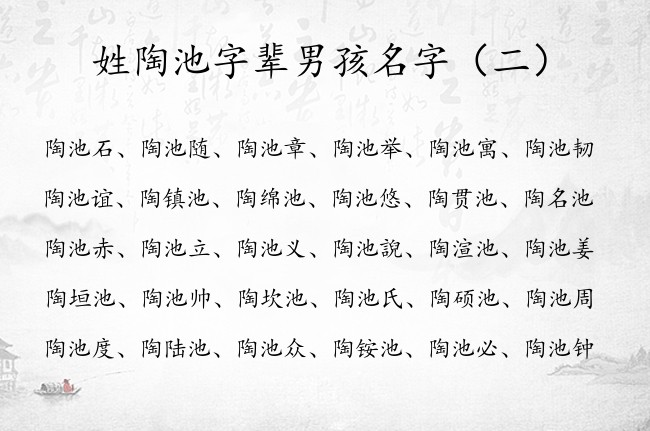 姓陶池字辈男孩名字（二）
陶池石、陶池随、陶池章、陶池举、陶池寓、陶池韧
陶池谊、陶镇池、陶绵池、陶池悠、陶贯池、陶名池
陶池赤、陶池立、陶池义、陶池誽、陶渲池、陶池姜
陶垣池、陶池帅、陶坎池、陶池氏、陶硕池、陶池周
陶池度、陶陆池、陶池众、陶铵池、陶池必、陶池钟